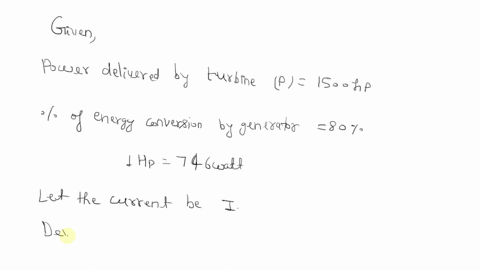 Given,
Power delivered by turbine (P) = 1500 hp
% of energy conversion by generator = 80%
1 Hp = 746 watt
Let the current be I.
Del